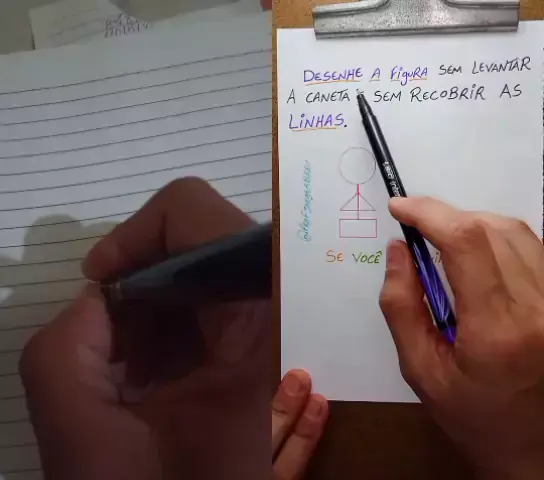 DESENHE A FiGURA SEM LEVANTAR
A CANETA SEM RECOBRiR AS
LiNHAS.
SE VOCÊ